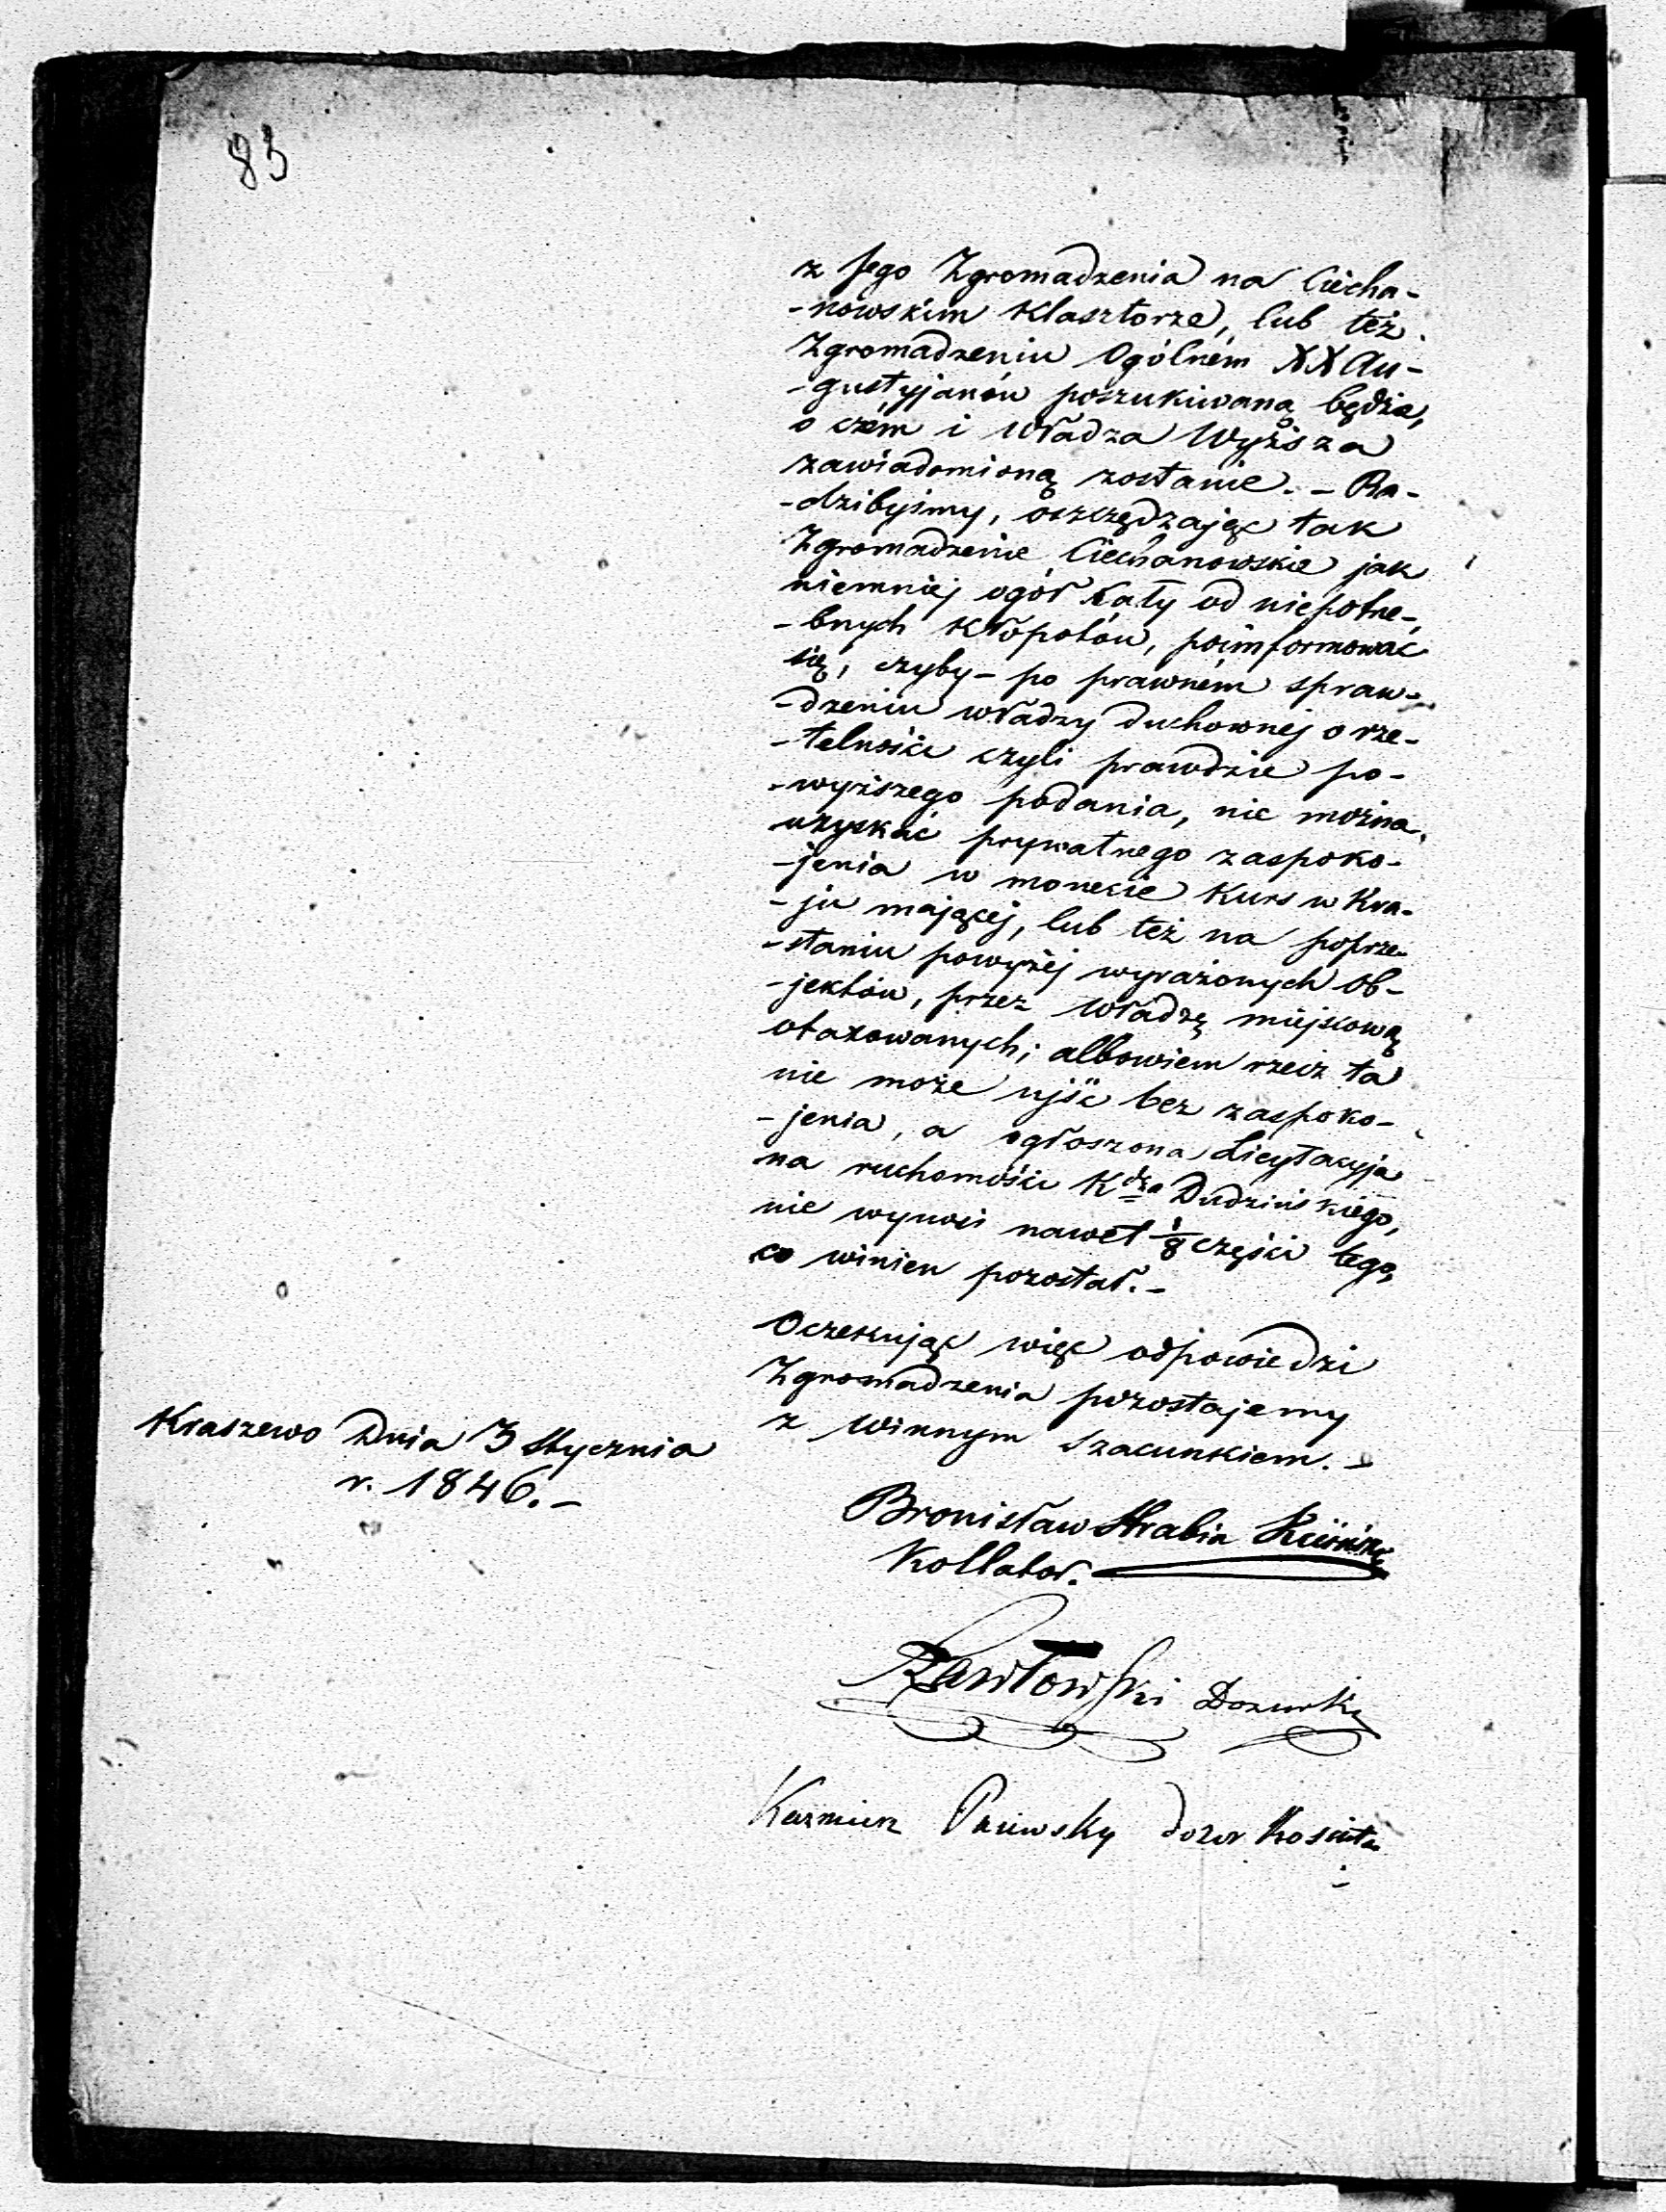 83
z Jego Zgromadzenia na Ciecha-
-nowskim Klasztorze, lub też
Zgromadzeniu Ogólném XX Au-
-gustyjanów poszukiwaną będzie,
o czém i Władza Wyższa
zawiadomioną zostanie. - Ra-
-dzibyśmy, oszczędzając tak
Zgromadzenie Ciechanowskie jak
niemniéj ogół Cały od niepotrze-
-bnych kłopotów, poinformować
się, czyby - po prawném spraw-
-dzeniu władzy duchownéj o rze-
-telności czyli prawdzie po-
-wyższego podania, nie można
uzyskać prywatnego zaspoko-
-jenia w monecie Kurs w Kra-
-ju mającéj, lub téż na poprze-
-staniu powyżéj wyrażonych Ob-
-jektów, przez Władzę miejscową
otaxowanych; albowiem rzecz ta
nie może ujść bez zaspoko-
-jenia, a ogłoszona Licytacyja
na ruchomości Kdza Dudzińskiego,
nie wynosi nawet 1/8 części tego,
co winien pozostał. -
Oczekując więc odpowiedzi
Zgromadzenia pozostajemy
z winnym szacunkiem. -
Kraszewo Dnia 3 Stycznia
r. 1846. -
Bronisław Hrabia
Kollator.
Pawłowski
Kazmierz dozor